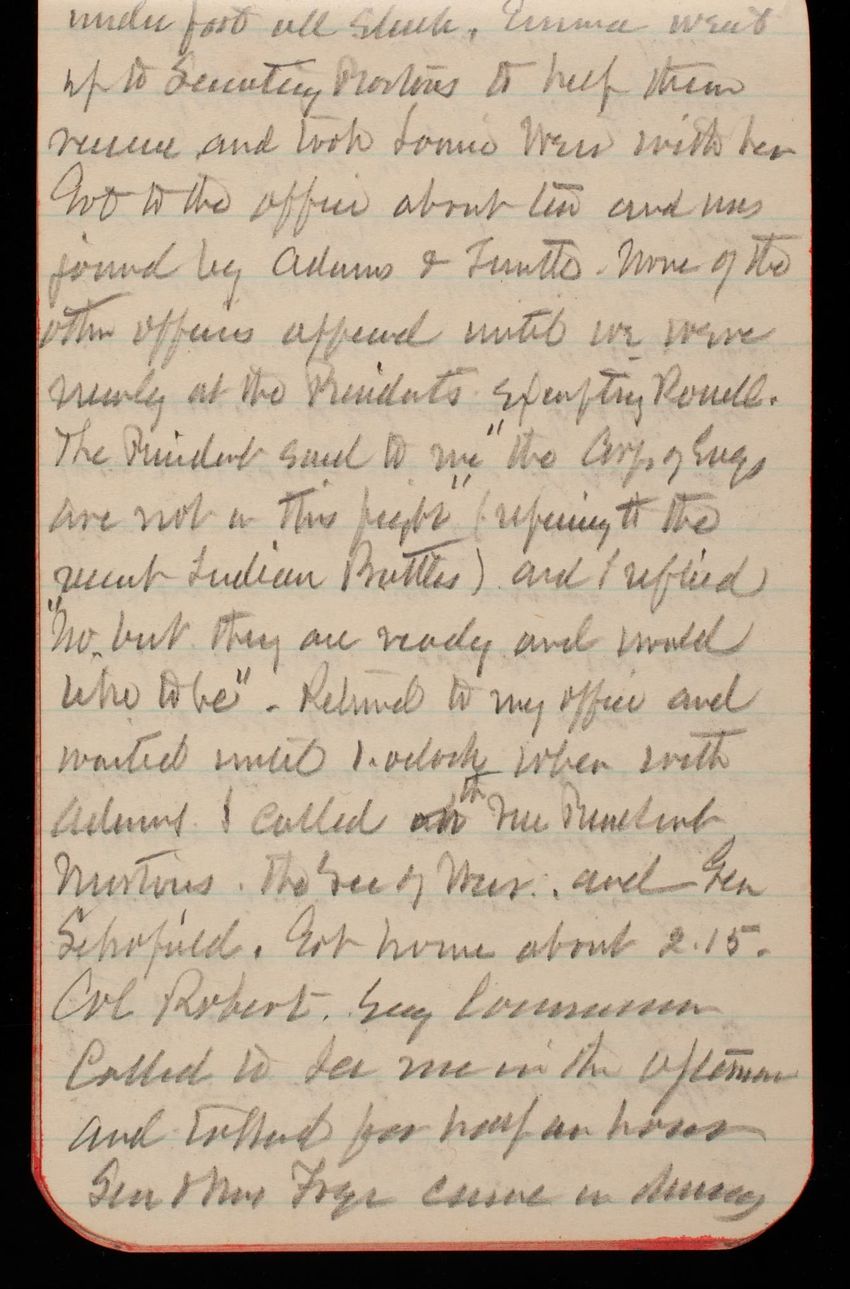 under foot all slush. Emma went
up to Secretary Proctors to help them
receive and took Loomis Weir with her
Got to the office about ten and was
joined by Adams & . None of the
other officers appeared until we were
nearly at the Presidents excepting Powell.
The President said to me "the Corps of Engs
are not in this fight" (refering to the
recent Indian Battles) and I replied
"No. but they are ready and would
like to be". Returned to my office and
waited until 1. oclock when with
Adams I called on the Vice President
Mortons. the Sec of War. and Gen
Schofield. Got home about 2.15.
Col Robert. Eng
Called to see me in the afternoon
and talked for half an hour
Gen & Mrs came in during